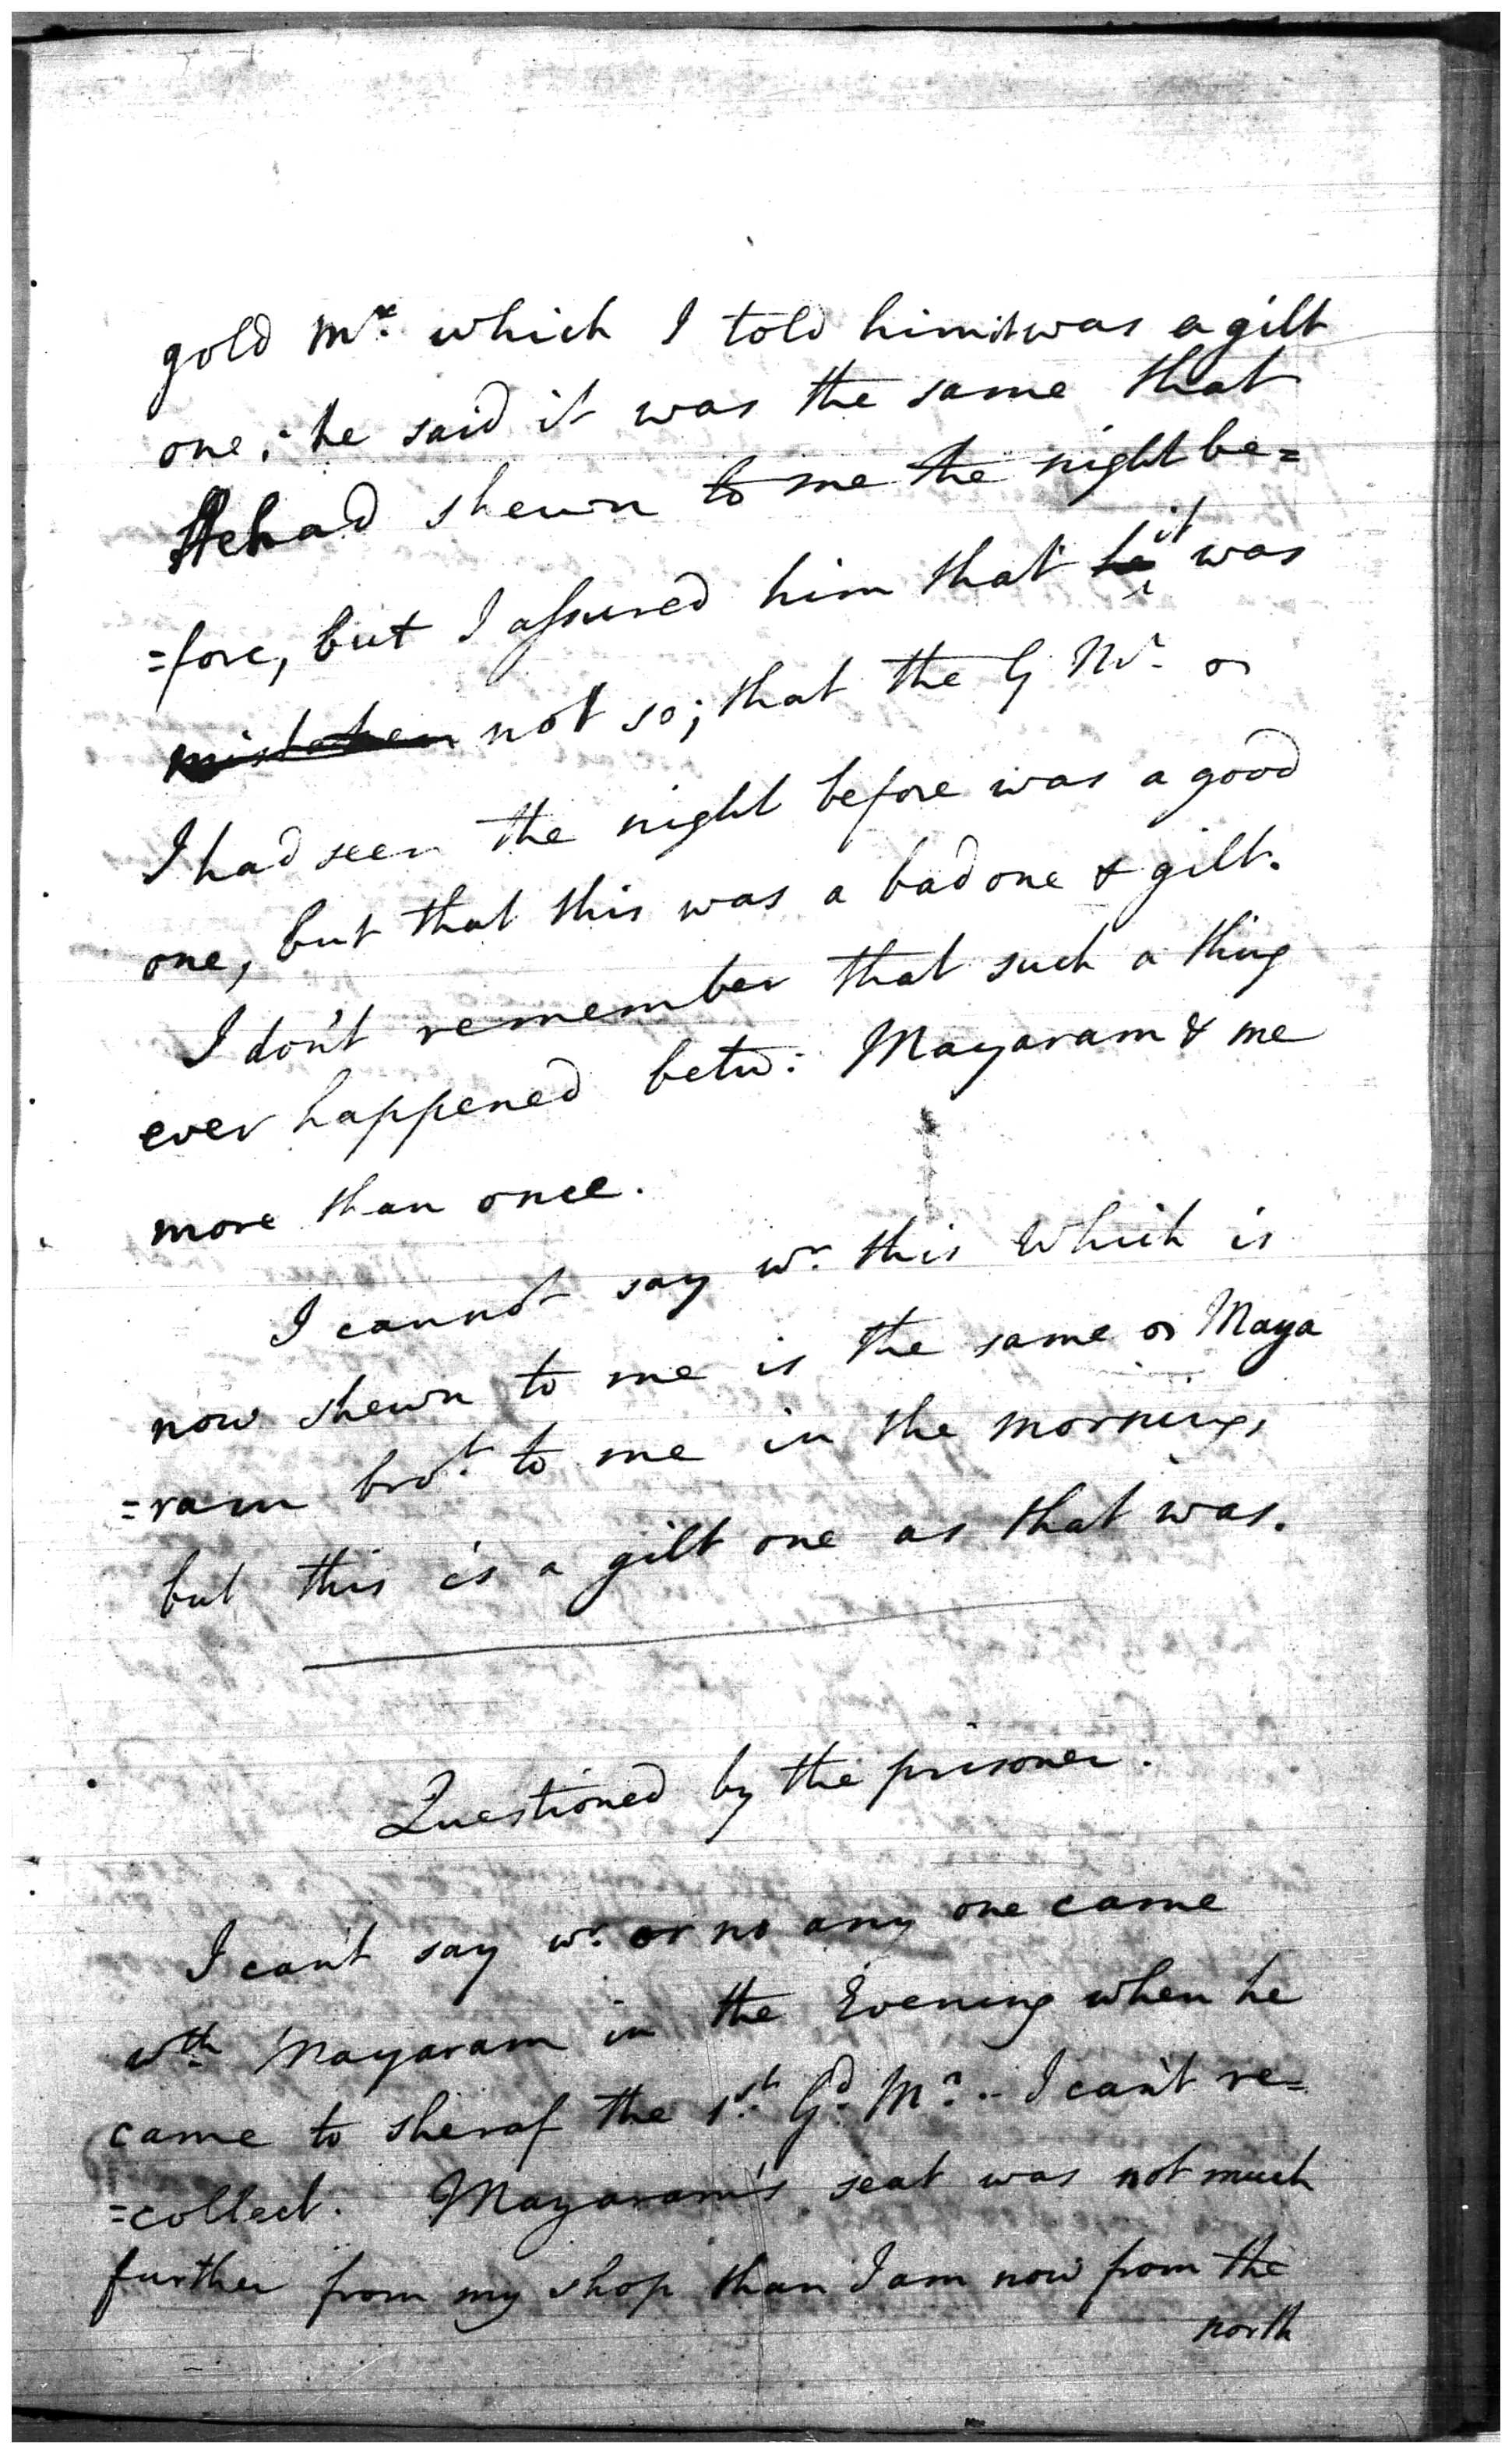 gold Mr. which I told him it was a gilt
one; he said it was the same that
He had shewn to me the night be=
=fore, but I assured him that he it was
mistaken not so; that the G Mr. or
I had seen the night before was a good
one, but that this was a bad one & gilt.
I don't remember that such a thing
ever happened betw: Mayaram & me
more than once.
I cannot say wr. this Which is
now shewn to me is the same or Maya
=ram brot. to me in the morning,
but this is a gilt one as that was.
Questioned by the prisoner.
I can't say wr. or no any one came
wth Mayaram in the Evening when he
came to sheraf the 1st. Gd. Mr. - I can't re=
=collect. Mayaram's seat was not much
further from my shop than I am now from the
north